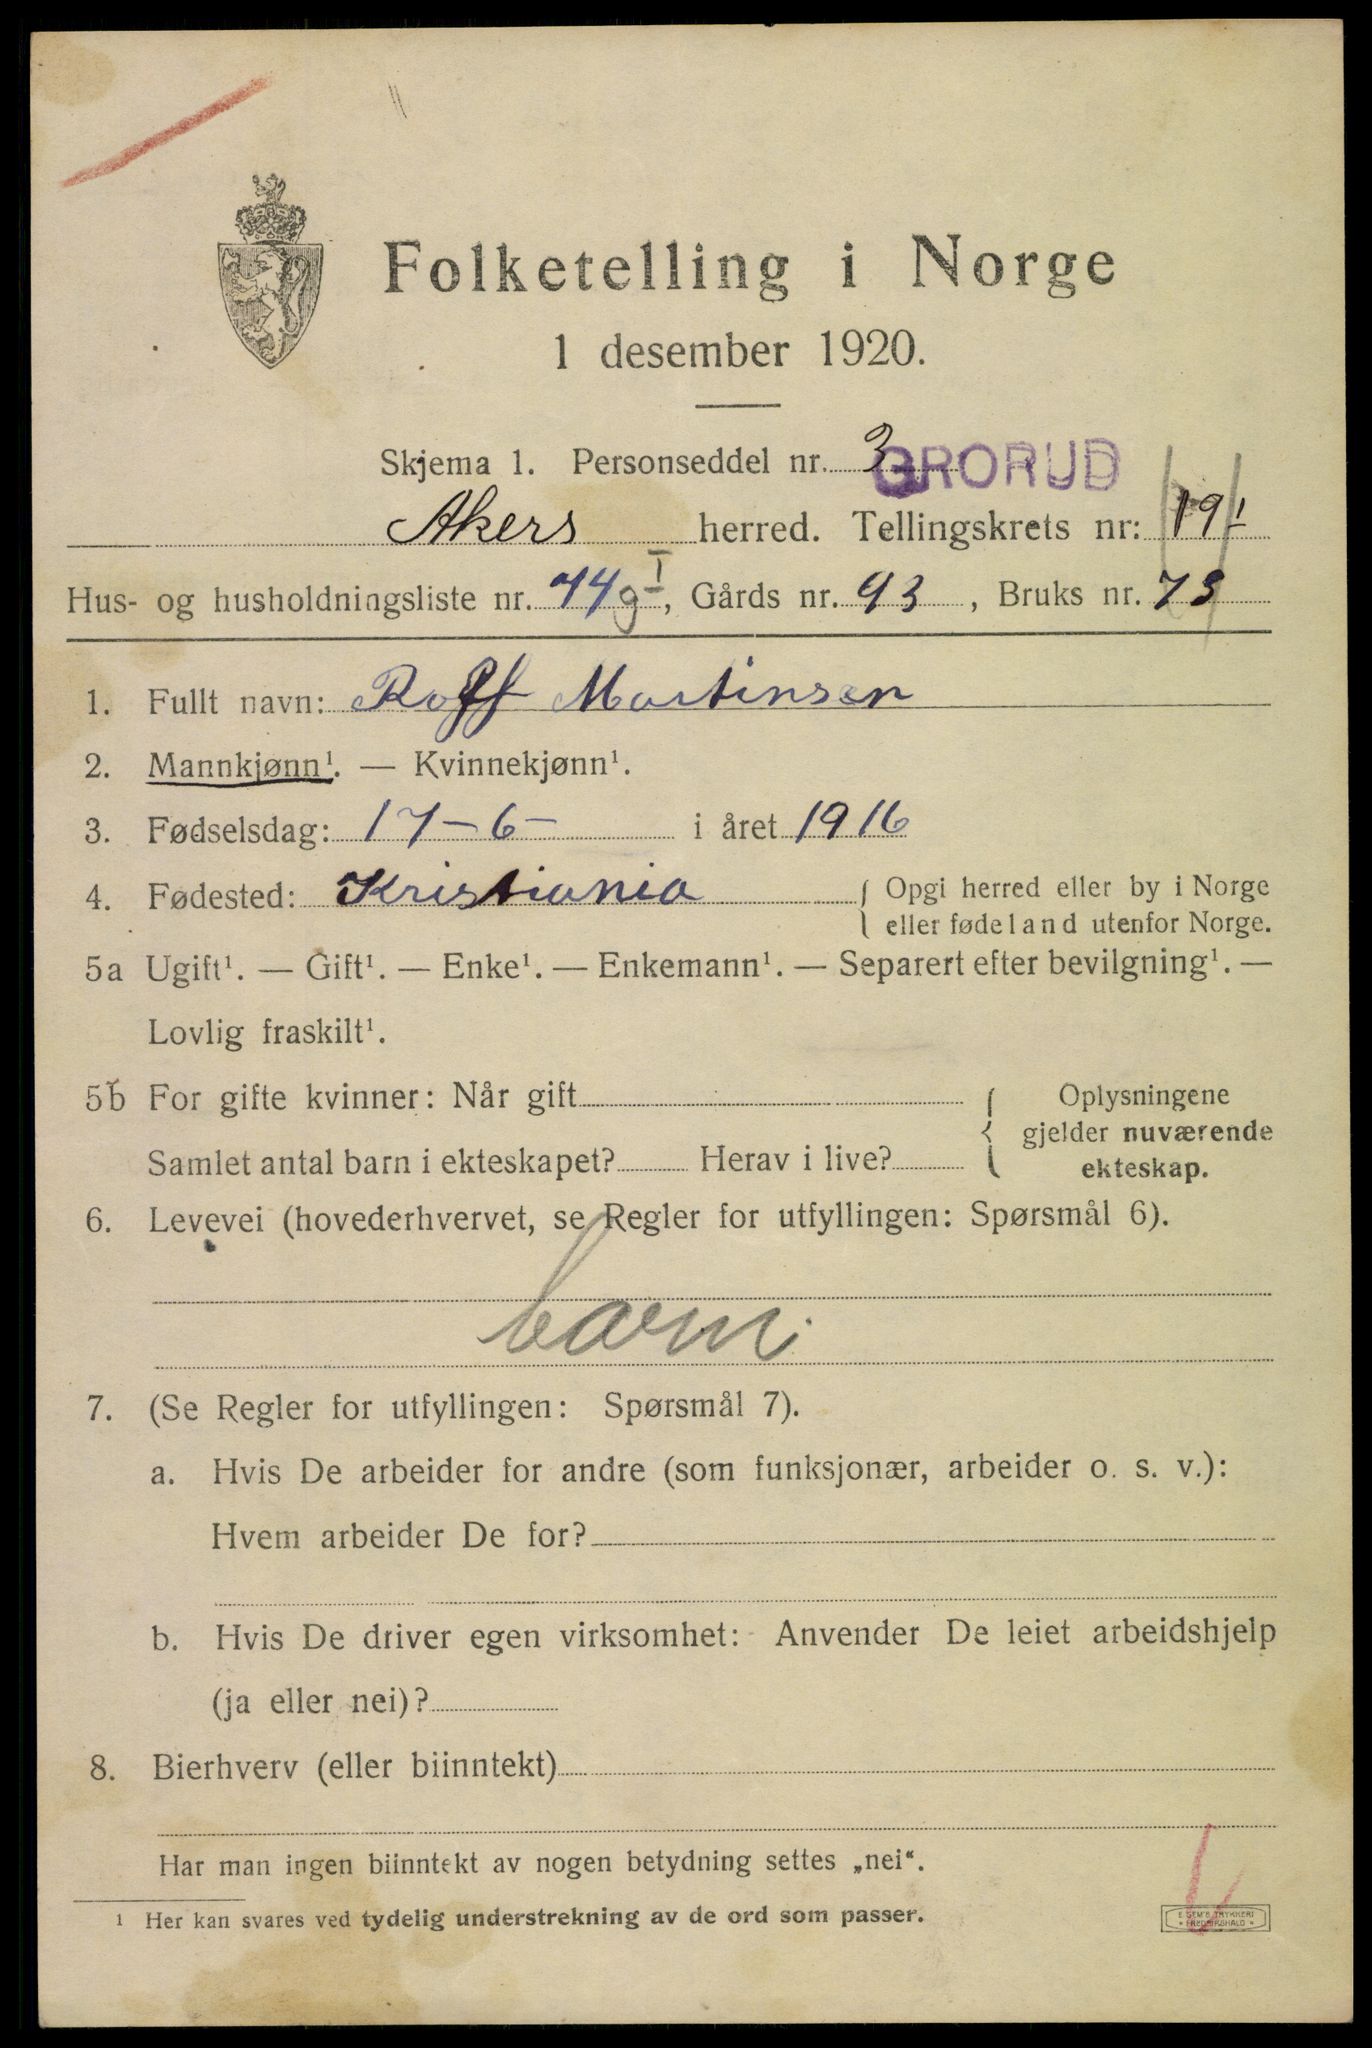 Folketelling i Norge
1 desember 1920.
Skjema 1. Personseddel nr. 3 GRORUD
Akers herred. Tellingskrets nr: 19 1
Hus- og husholdningsliste nr. 74 g I, Gårds nr. 93, Bruks nr. 73
1. Fullt navn: Rolf Martinsen
2. Mannkjønn¹. — Kvinnekjønn¹.
3. Fødselsdag: 17-6- i året 1916
4. Fødested: Kristiania { Opgi herred eller by i Norge
eller fødeland utenfor Norge.
5a Ugift¹. — Gift¹. — Enke¹. — Enkemann¹. — Separert efter bevilgning¹. —
Lovlig fraskilt¹.
5b For gifte kvinner: Når gift { Oplysningene
gjelder nuværende
Samlet antal barn i ekteskapet? Herav i live? ekteskap.
6. Levevei (hovederhvervet, se Regler for utfyllingen: Spørsmål 6).
barn.
7. (Se Regler for utfyllingen: Spørsmål 7).
a. Hvis De arbeider for andre (som funksjonær, arbeider o. s. v.):
Hvem arbeider De for?
b. Hvis De driver egen virksomhet: Anvender De leiet arbeidshjelp
(ja eller nei)?
8. Bierhverv (eller biinntekt)
Har man ingen biinntekt av nogen betydning settes „nei“.
¹ Her kan svares ved tydelig understrekning av de ord som passer.
E. SEM'S TRYKKERI
* FREDRIKSHALD *